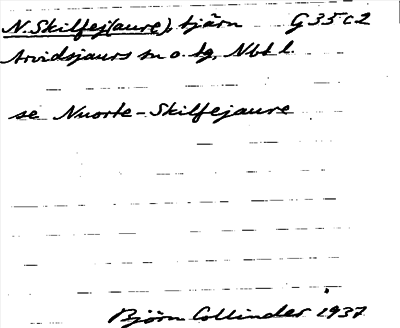 N. Skilfej(aure), tjärn G 35 c 2
Arvidsjaurs sn o. tg, Nbt l.
se Nuorte-Skilfejaure
Björn Collinder 1937